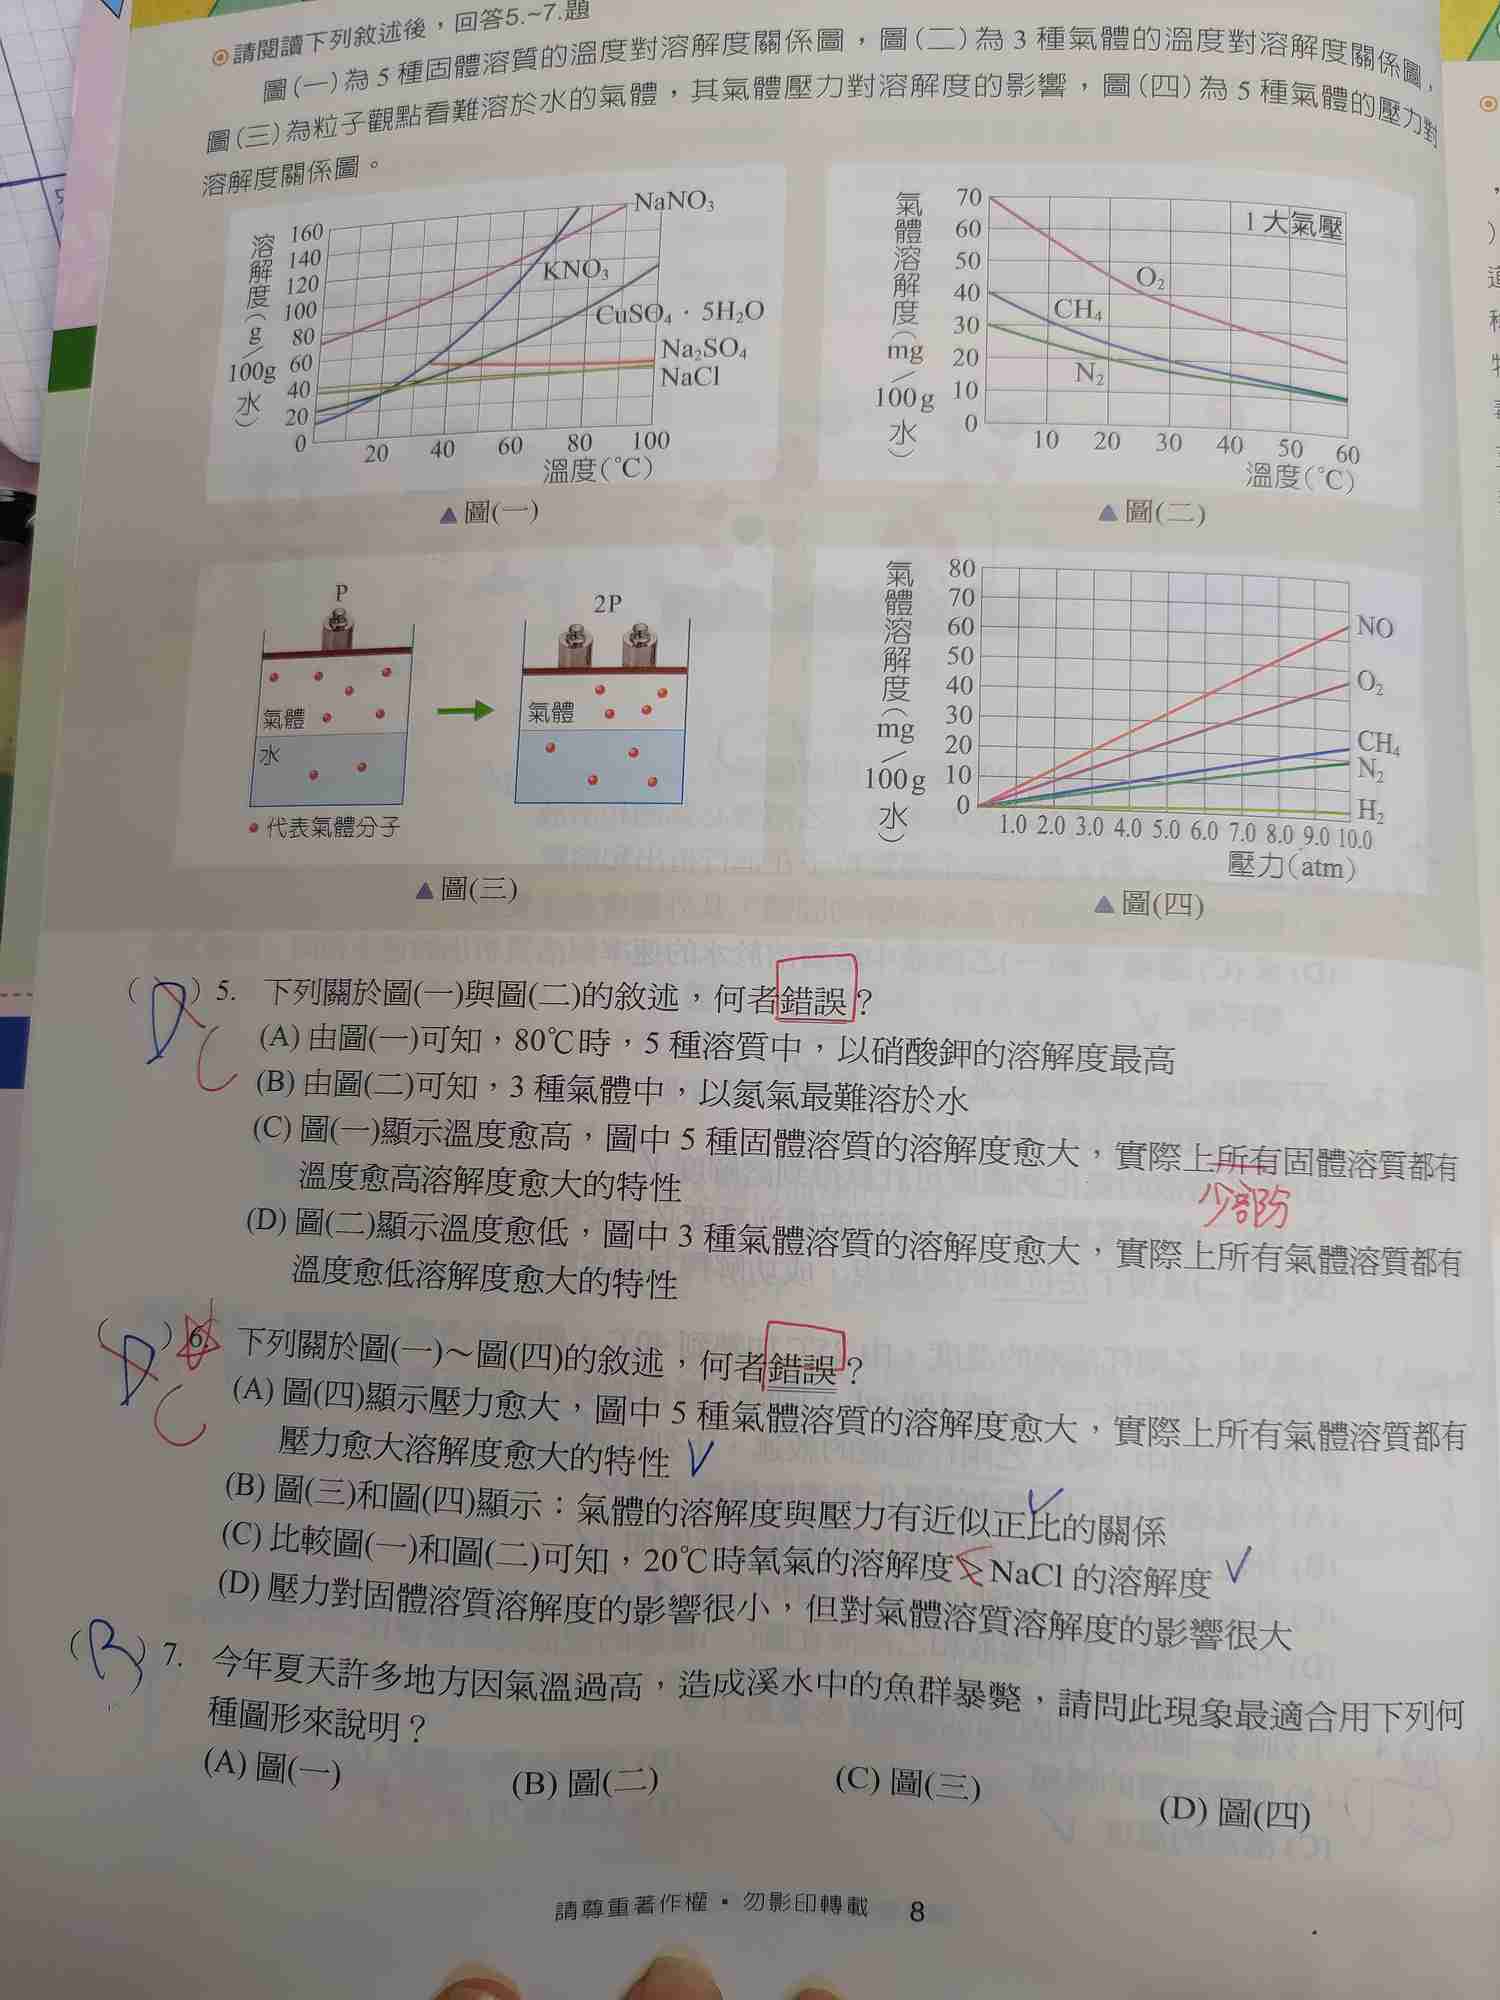 ◉請閱讀下列敘述後，回答5.~7.題
圖(一)為5種固體溶質的溫度對溶解度關係圖，圖(二)為3種氣體的溫度對溶解度關係圖，
圖(三)為粒子觀點看難溶於水的氣體，其氣體壓力對溶解度的影響，圖(四)為5種氣體的壓力對
溶解度關係圖。
溶解度(g/100g水)
160
140
120
100
80
60
40
20
0
20 40 60 80 100
溫度(℃)
NaNO₃
KNO₃
CuSO₄・5H₂O
Na₂SO₄
NaCl
▲圖(一)
氣體溶解度(mg/100g水)
70
60
50
40
30
20
10
0
10 20 30 40 50 60
溫度(℃)
1大氣壓
O₂
CH₄
N₂
▲圖(二)
P
2P
氣體
水
氣體
●代表氣體分子
▲圖(三)
氣體溶解度(mg/100g水)
80
70
60
50
40
30
20
10
0
1.0 2.0 3.0 4.0 5.0 6.0 7.0 8.0 9.0 10.0
壓力(atm)
NO
O₂
CH₄
N₂
H₂
▲圖(四)
(D)5. 下列關於圖(一)與圖(二)的敘述，何者錯誤？
C
(A) 由圖(一)可知，80℃時，5種溶質中，以硝酸鉀的溶解度最高
(B) 由圖(二)可知，3種氣體中，以氮氣最難溶於水
(C) 圖(一)顯示溫度愈高，圖中5種固體溶質的溶解度愈大，實際上所有固體溶質都有
少部分
溫度愈高溶解度愈大的特性
(D) 圖(二)顯示溫度愈低，圖中3種氣體溶質的溶解度愈大，實際上所有氣體溶質都有
溫度愈低溶解度愈大的特性
(D)6. 下列關於圖(一)～圖(四)的敘述，何者錯誤？
C
(A) 圖(四)顯示壓力愈大，圖中5種氣體溶質的溶解度愈大，實際上所有氣體溶質都有
壓力愈大溶解度愈大的特性
(B) 圖(三)和圖(四)顯示：氣體的溶解度與壓力有近似正比的關係
(C) 比較圖(一)和圖(二)可知，20℃時氧氣的溶解度>NaCl的溶解度
(D) 壓力對固體溶質溶解度的影響很小，但對氣體溶質溶解度的影響很大
(B)7. 今年夏天許多地方因氣溫過高，造成溪水中的魚群暴斃，請問此現象最適合用下列何
種圖形來說明？
(A) 圖(一) (B) 圖(二) (C) 圖(三) (D) 圖(四)
請尊重著作權・勿影印轉載 8